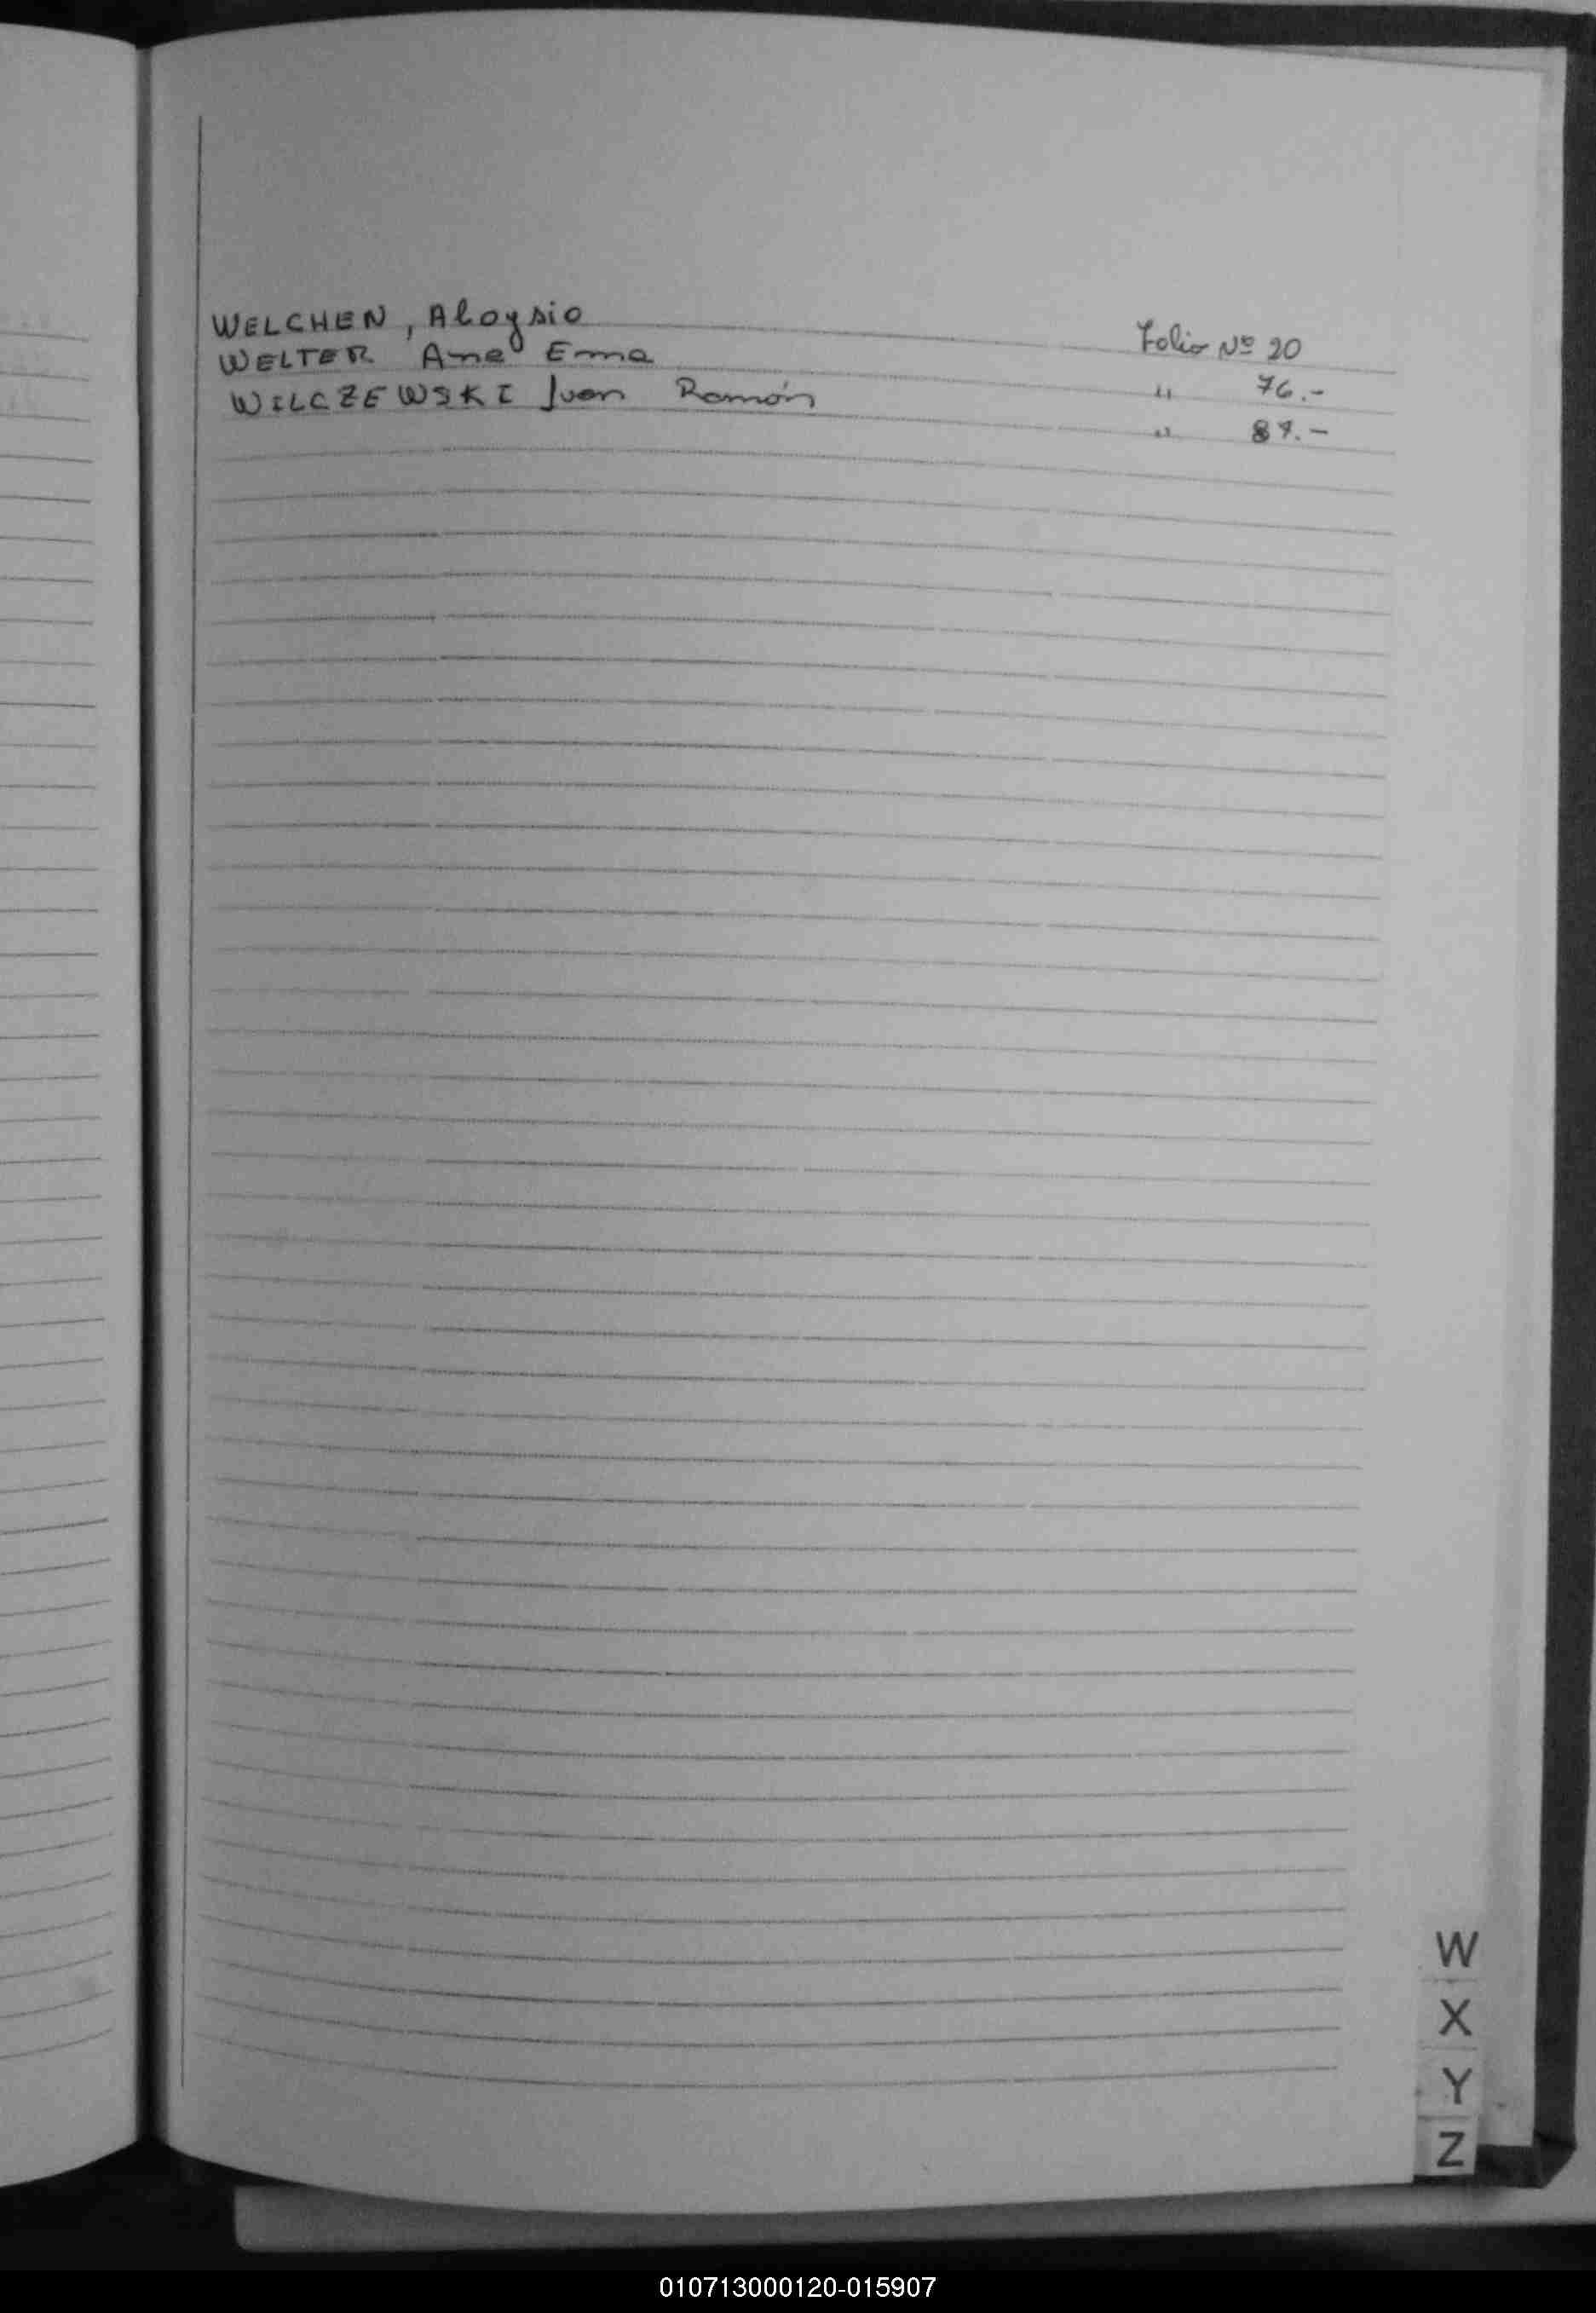 WELCHEN, Aloysio Folio Nº 20
WELTER Ana Ema " 76.-
WILCZEWSKI Juan Ramón " 89.-
W
X
Y
Z
010713000120-015907